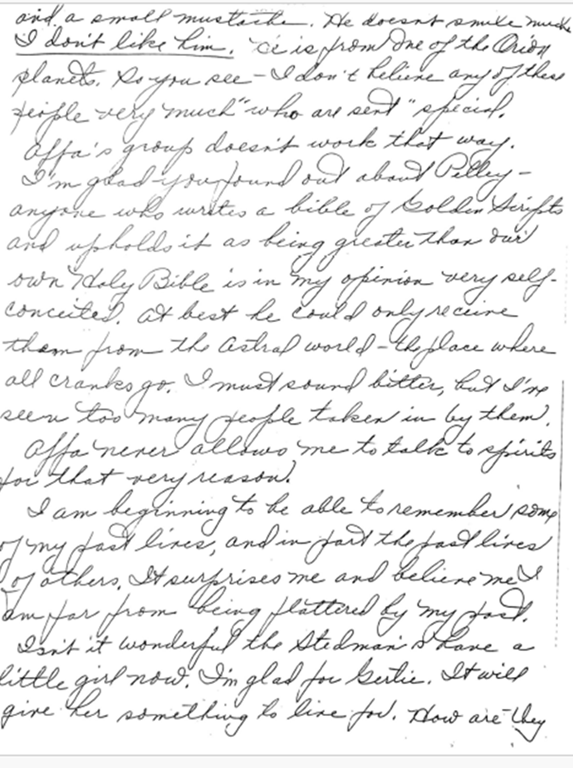 and a small mustache. He doesnt smile much
I don't like him. He is from one of the Orion
planets. So you see - I don't believe any of these
people very much "who are sent" special.
Affa's group doesn't work that way.
I'm glad you found out about Pelley -
anyone who writes a bible of Golden Scripts
and upholds it as being greater than our
own Holy Bible is in my opinion very self-
conceited. At best he could only receive
them from the astral world - the place where
all cranks go. I must sound bitter, but I've
seen too many people taken in by them.
Affa never allows me to talk to spirits
for that very reason.
I am beginning to be able to remember some
of my past lives, and in part the past lives
of others. It surprises me and believe me I
am far from being flattered by my past.
Isn't it wonderful the Stedman's have a
little girl now. I'm glad for Gertie. It will
give her something to live for. How are they